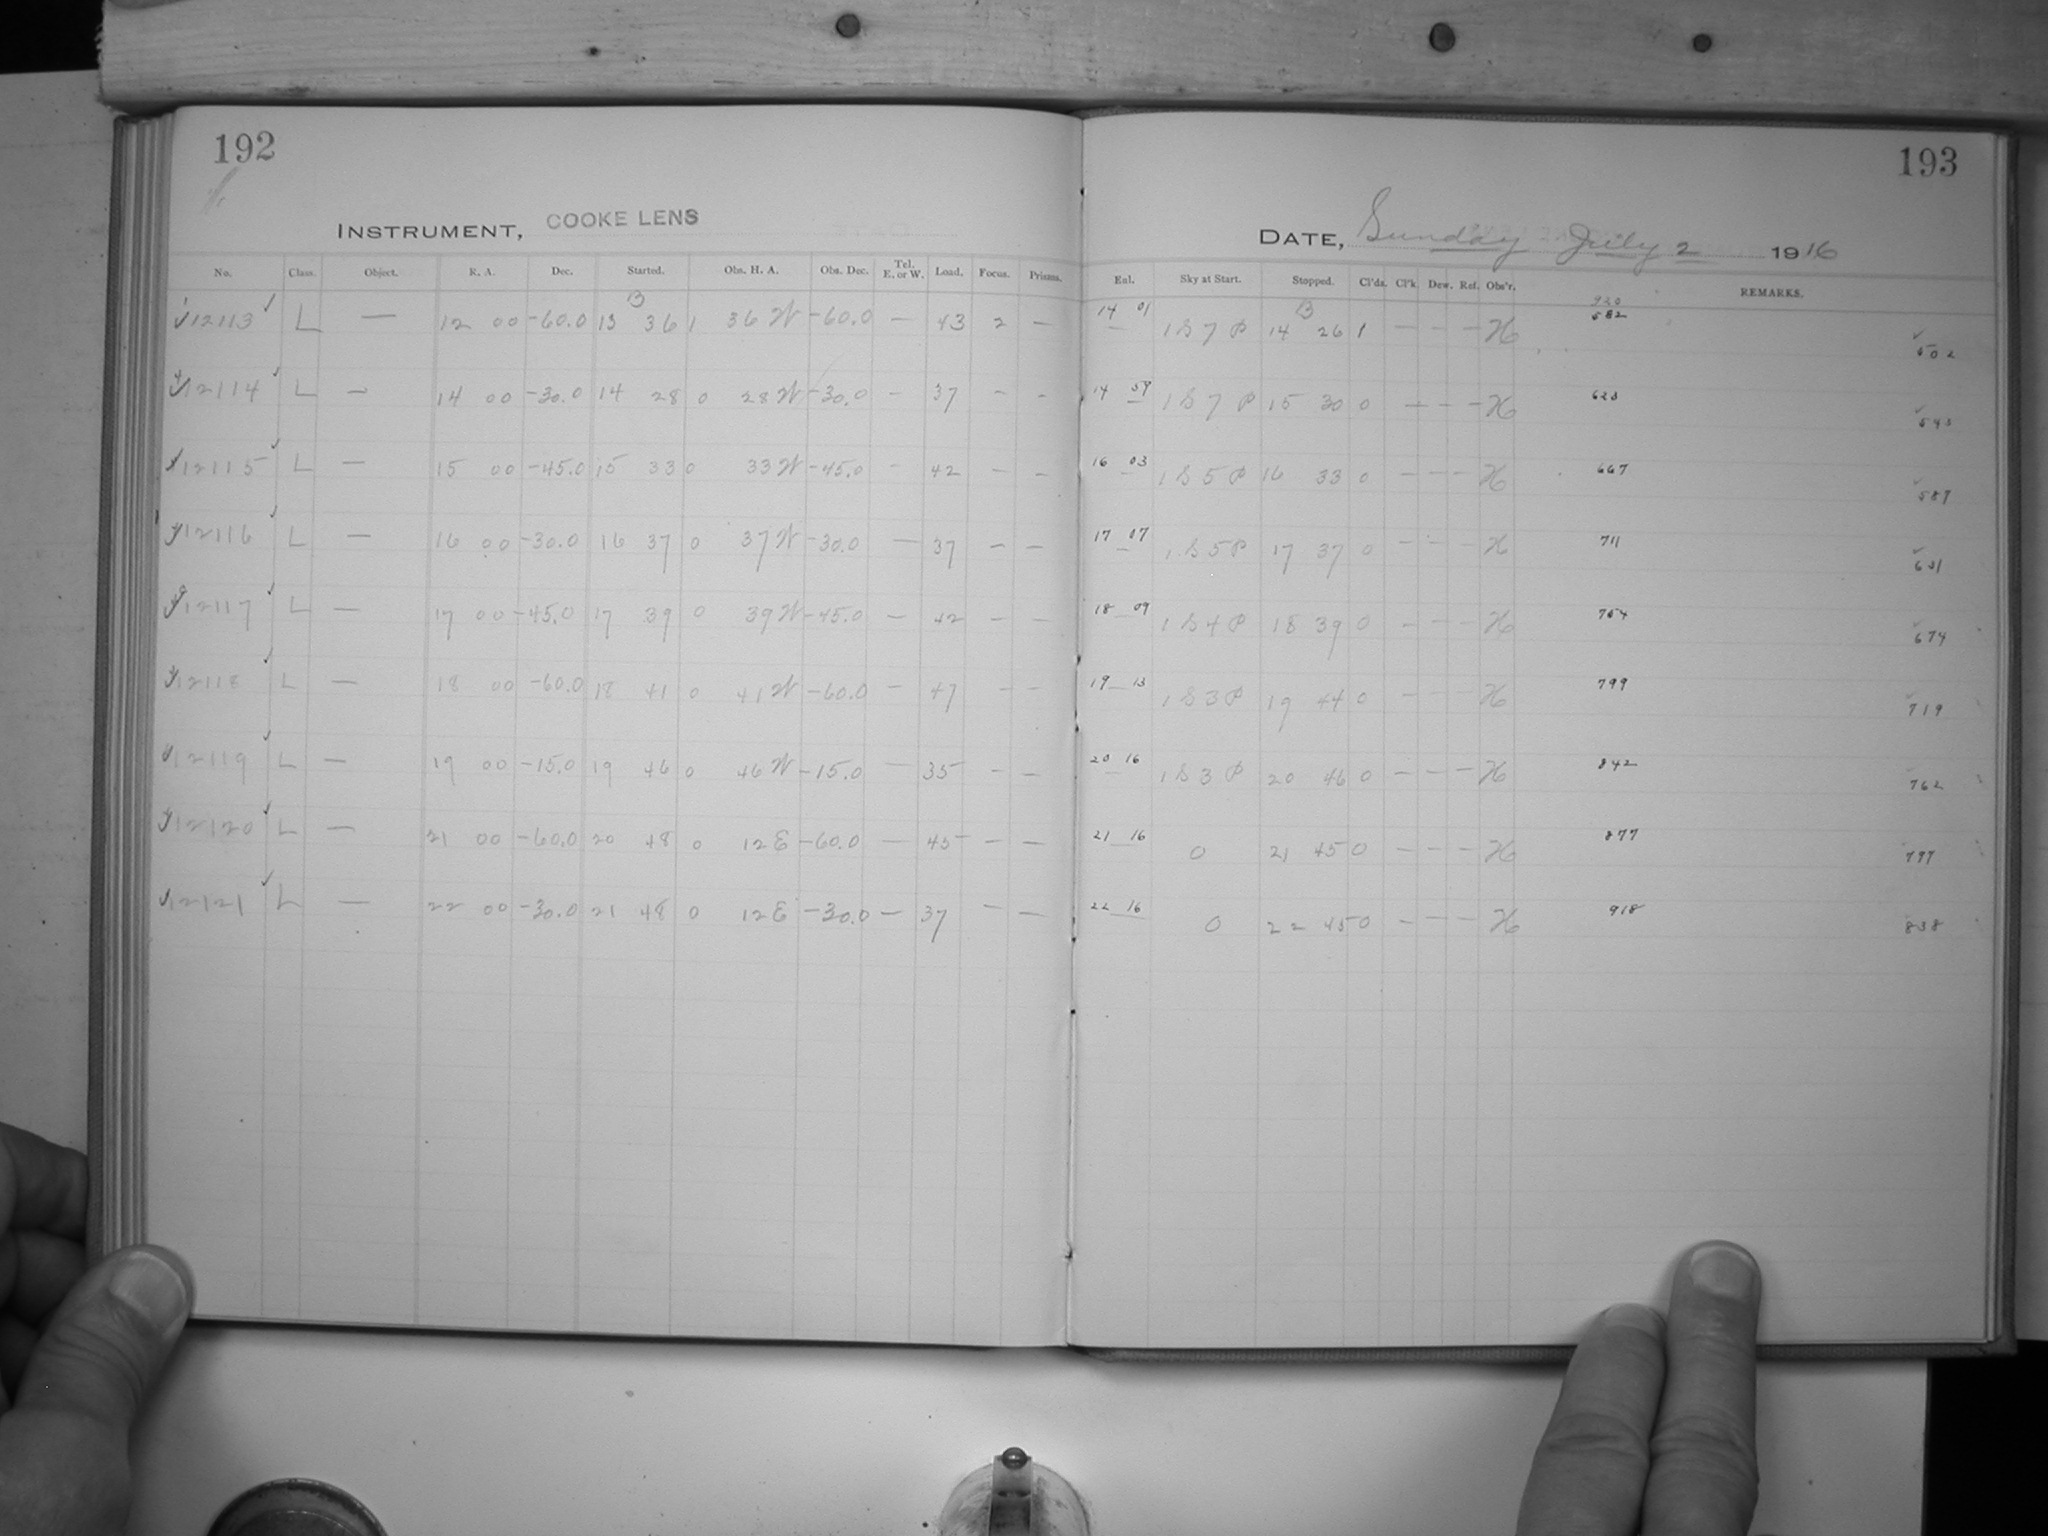 192
INSTRUMENT, COOKE LENS
No. Class. Object. R. A. Dec. Started. Obs. H. A. Obs. Dec. Tel. E. or W. Load. Focus. Prisms.
B
12113 L — 12 00 -60.0 13 36 1 36 W -60.0 — 43 2 —
12114 L — 14 00 -30.0 14 28 0 28 W -30.0 — 37 — —
12115 L — 15 00 -45.0 15 33 0 33 W -45.0 — 42 — —
12116 L — 16 00 -30.0 16 37 0 37 W -30.0 — 37 — —
12117 L — 17 00 -45.0 17 39 0 39 W -45.0 — 42 — —
12118 L — 18 00 -60.0 18 41 0 41 W -60.0 — 47 — —
12119 L — 19 00 -15.0 19 46 0 46 W -15.0 — 35 — —
12120 L — 21 00 -60.0 20 48 0 12 E -60.0 — 45 — —
12121 L — 22 00 -30.0 21 48 0 12 E -30.0 — 37 — —
193
DATE, Sunday July 2 1916
Enl. Sky at Start. Stopped. Cl'ds. Cl'k. Dew. Ref. Obs'r. REMARKS.
B 920
14 01 1 S 7 P 14 26 1 — — — H 582 502
14 59 1 S 7 P 15 30 0 — — — H 623 543
16 03 1 S 5 P 16 33 0 — — — H 667 587
17 07 1 S 5 P 17 37 0 — — — H 711 631
18 09 1 S 4 P 18 39 0 — — — H 754 674
19 13 1 S 3 P 19 44 0 — — — H 799 719
20 16 1 S 3 P 20 46 0 — — — H 842 762
21 16 0 21 45 0 — — — H 877 797
22 16 0 22 45 0 — — — H 918 838